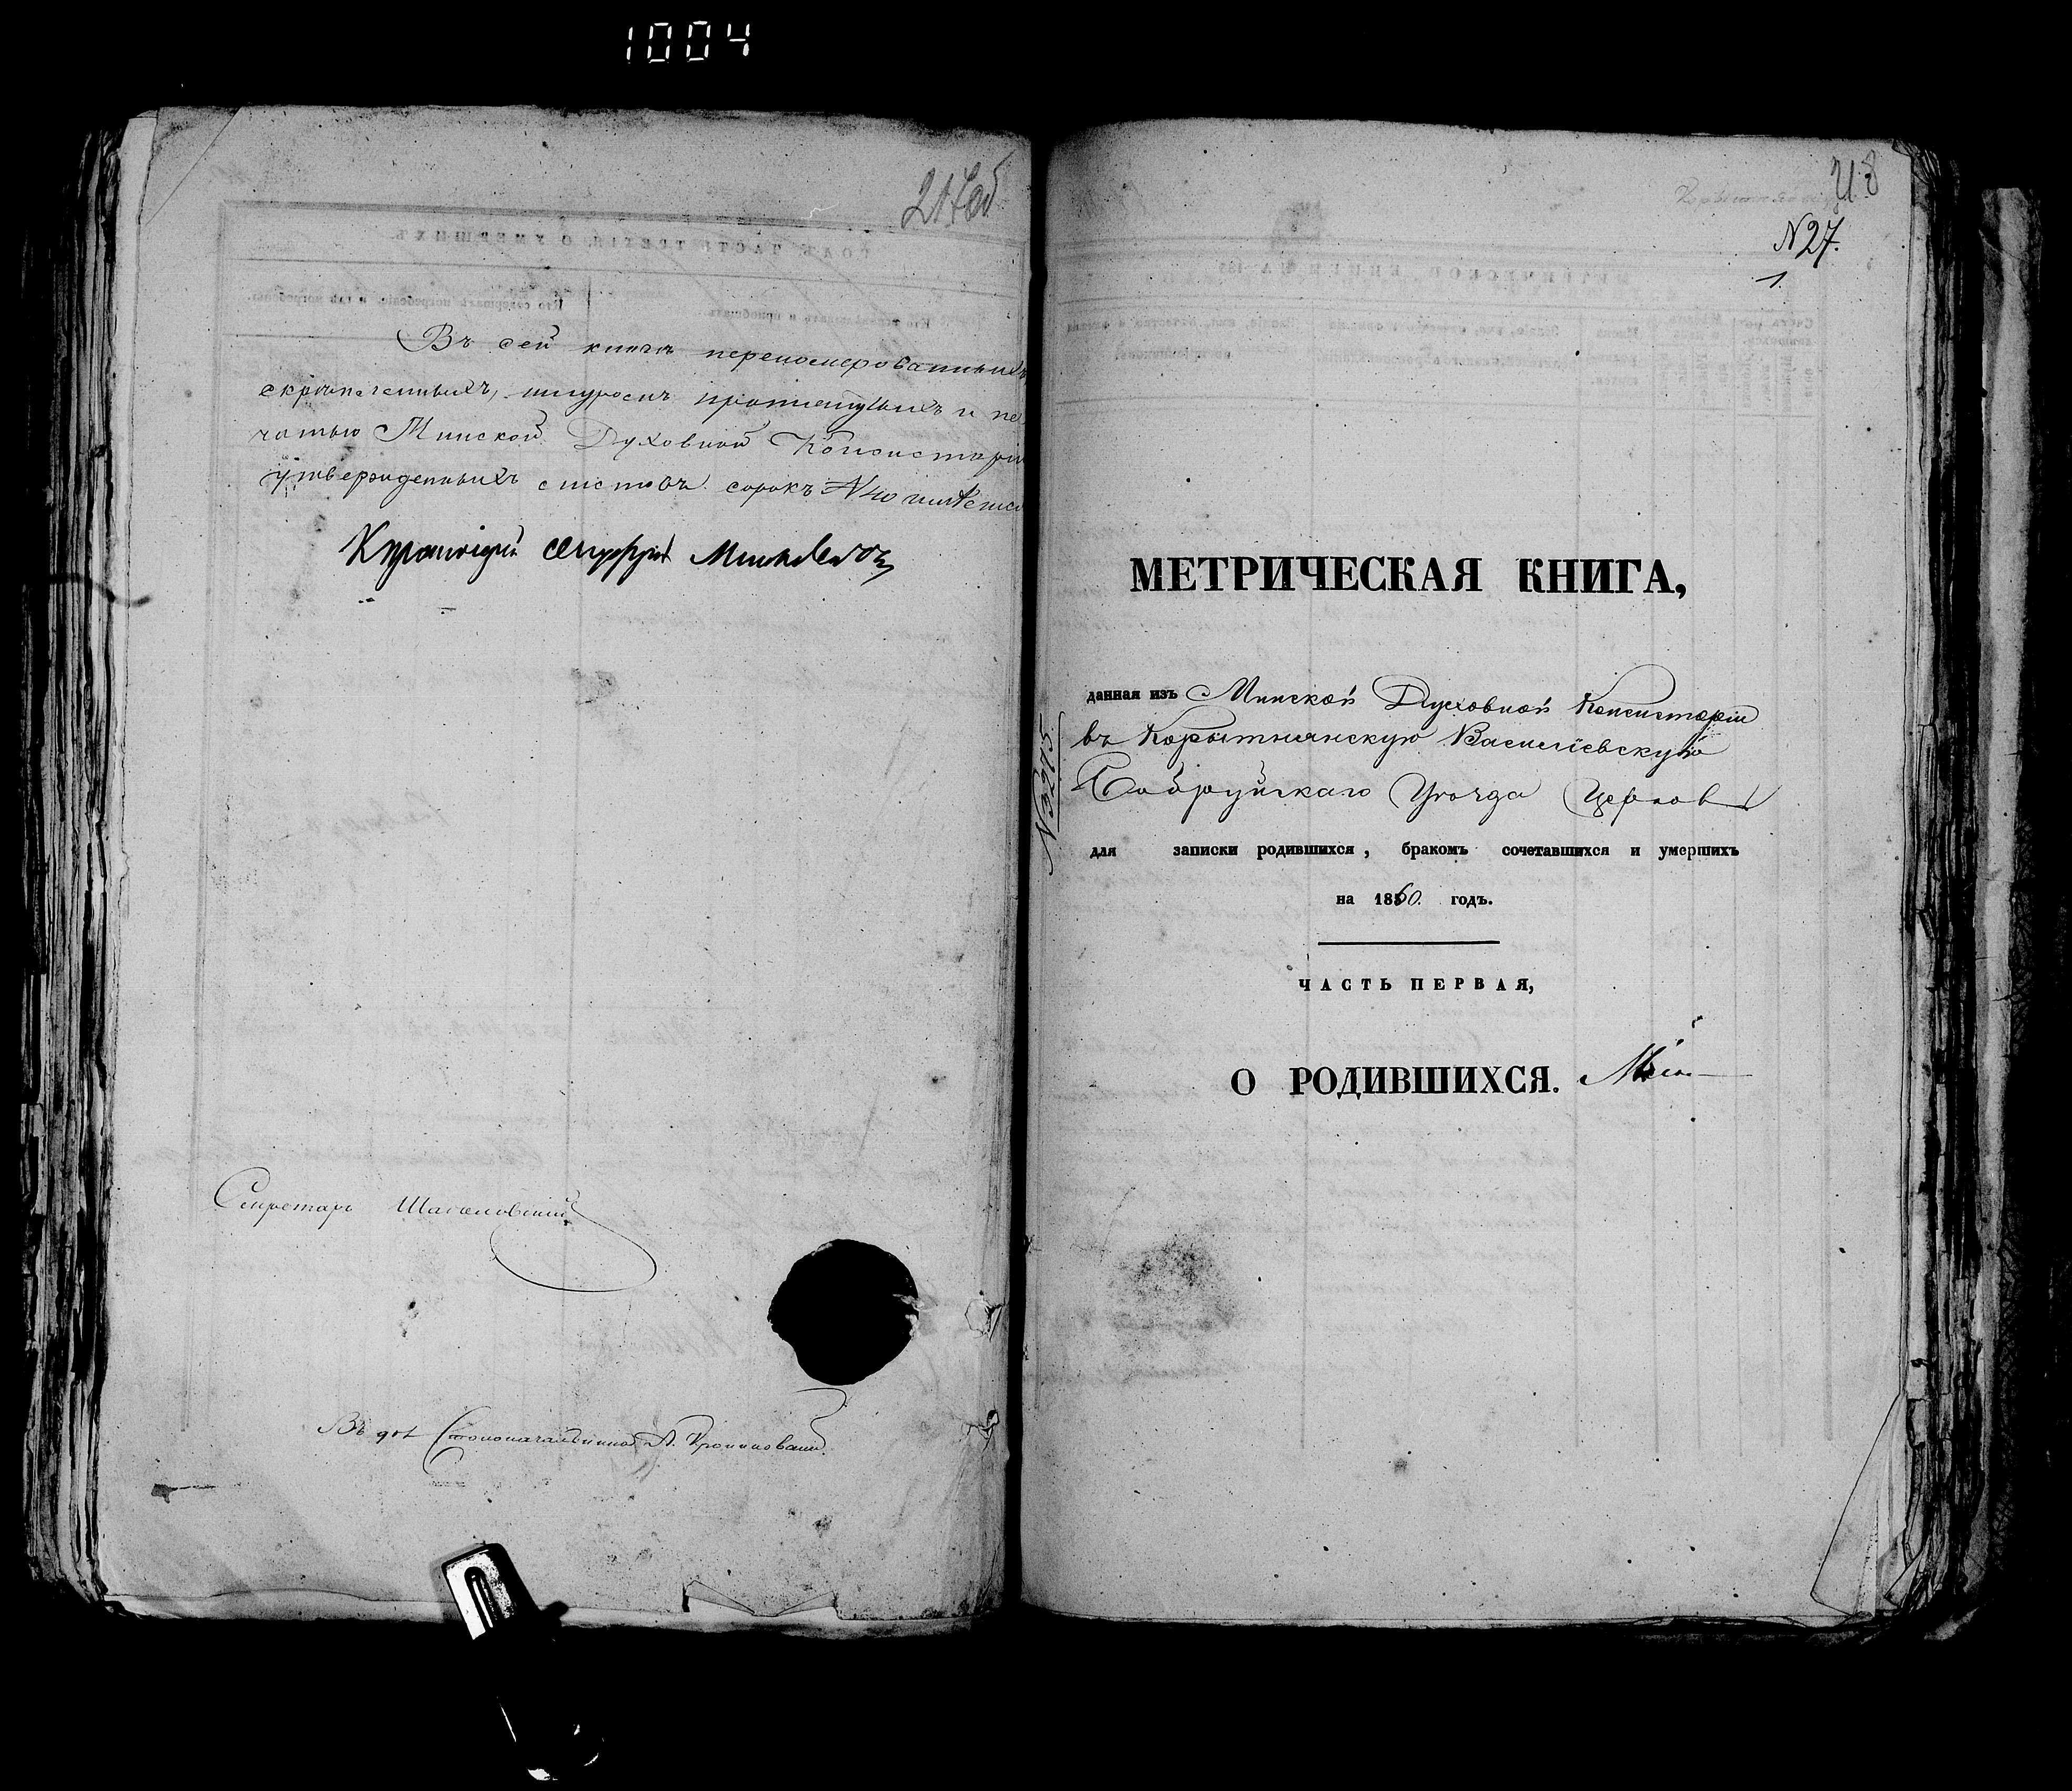 1004
217 об
Въ сей книгѣ переномерованныхъ
скрѣпленныхъ, шнуромъ протянутыхъ и пе-
чатью Минской Духовной Консисторіи
утвержденныхъ листовъ сорокъ № 40 имѣется
Секретарь
Въ дол. Столоначальника А.
218
№ 27.
1.
МЕТРИЧЕСКАЯ КНИГА,
данная изъ Минской Духовной Консисторіи
въ Корытнянскую Васильевскую
Бобруйскаго Уѣзда Церковь
для записки родившихся, бракомъ сочетавшихся и умершихъ
на 1860. годъ.
ЧАСТЬ ПЕРВАЯ,
О РОДИВШИХСЯ.